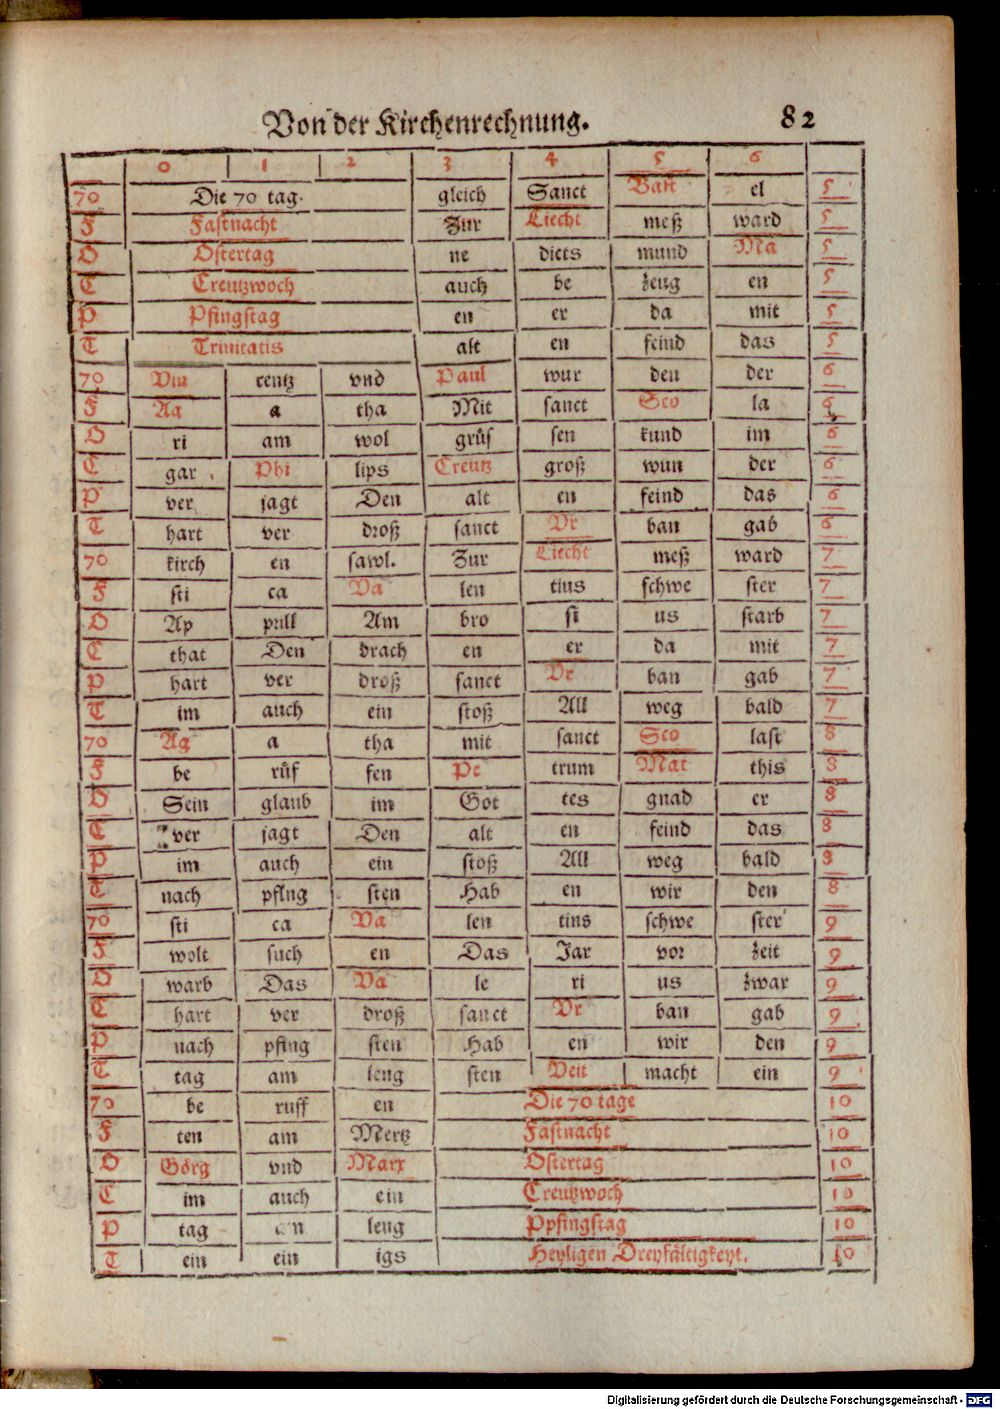 Von der Kirchenrechnung. 82
0 1 2 3 4 5 6
70 Die 70 tag. gleich Sanct el 5
F Fastnacht Zur Liecht meß ward 5
O Ostertag ne dicts mund Ma 5
C Creutzwoch auch be zeug en 5
P Pfingstag en er da mit 5
T Trinitatis alt en feind das 5
70 Vin centz vnd Paul wur den der 6
F Aa a tha Mit sanct Sco la 6
O ri am wol grůs sen kund im 6
C gar Phi lips Creutz groß wun der 6
P ver jagt Den alt en feind das 6
T hart ver droß sanct Vr ban gab 6
70 kirch en sawl. Zur Liecht meß ward 7
F sti ca Va len tius schwe ster 7
O Ap pull Am bro si us starb 7
C that Den drach en er da mit 7
P hart ver droß sanct Vr ban gab 7
T im auch ein stoß All weg bald 7
70 Ag a tha mit sanct Sco last 8
F be růf fen Pe trum Mat this 8
O Sein glaub im Got tes gnad er 8
C ver jagt Den alt en feind das 8
P im auch ein stoß All weg bald 8
T nach pfing sten Hab en wir den 8
70 sti ca Va len tins schwe ster 9
F wolt such en Das Jar vor zeit 9
O warb Das Va le ri us zwar 9
C hart ver droß sanct Vr ban gab 9
P nach pfing sten Hab en wir den 9
T tag am leng sten Veit macht ein 9
70 be ruff en Die 70 tage 10
F ten am Mertz Fastnacht 10
O Görg vnd Marx Ostertag 10
C im auch ein Creutzwoch 10
P tag am leng Ppfingstag 10
T ein ein igs Heyligen Dreyfältigkeyt. 10
Digitalisierung gefördert durch die Deutsche Forschungsgemeinschaft - DFG